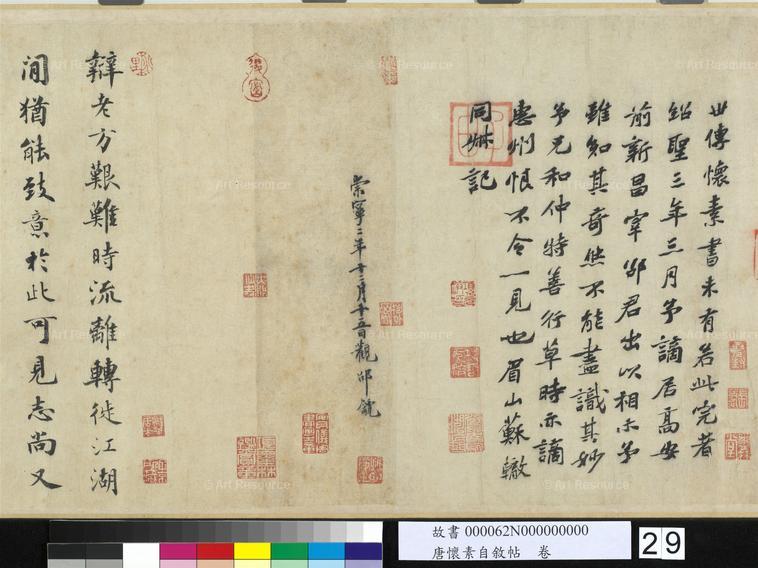 世傳懷素書未有若此完者
紹聖三年三月予謫居高安
前新昌宰邵君出以相示予
雖知其奇然不能盡識其妙
予兄和仲特善行草時亦謫
惠州恨不令一見也眉山蘇轍
同叔記
崇寧二年十二月十五日觀邵
辯老方艱難時流離轉徙江湖
間猶能致意於此可見志尚又
故書 000062N000000000
唐懷素自敘帖 卷
29
© Art Resource